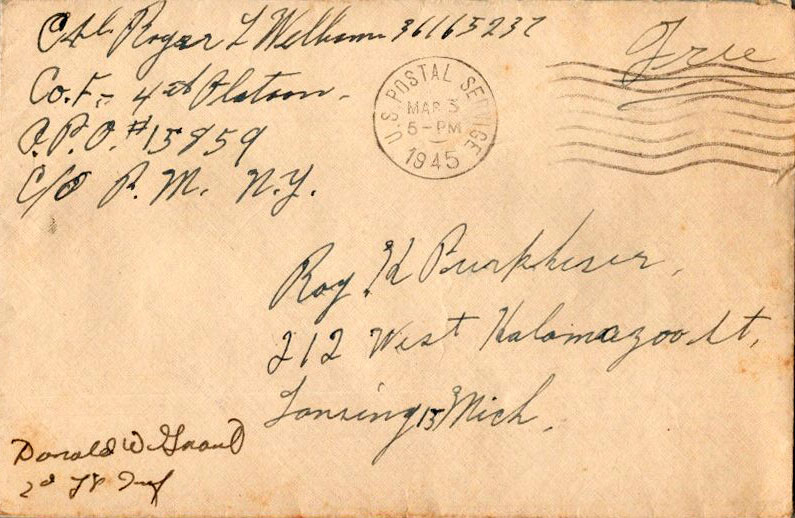 Cpl. Roger L Wellman 36165237
Co. F- 4th Platoon.
A.P.O. #15859
C/o P. M. N.Y.
U.S. POSTAL SERVICE
MAR 3
5-PM
1945
Free
Roy K Burkheiser,
212 West Kalamazoo St,
Lansing 15 Mich.
Donald W
2d Lt Inf